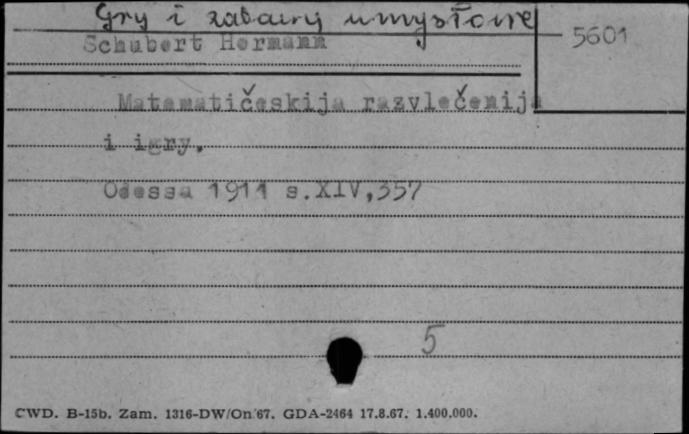 Gry i zabawy umysłowe
5601
Schubert Hermann
Matematičeskija razvlečenija
i igry.
Odessa 1911 s.XIV,357
5
CWD. B-15b. Zam. 1316-DW/On/67. GDA-2464 17.8.67. 1.400.000.